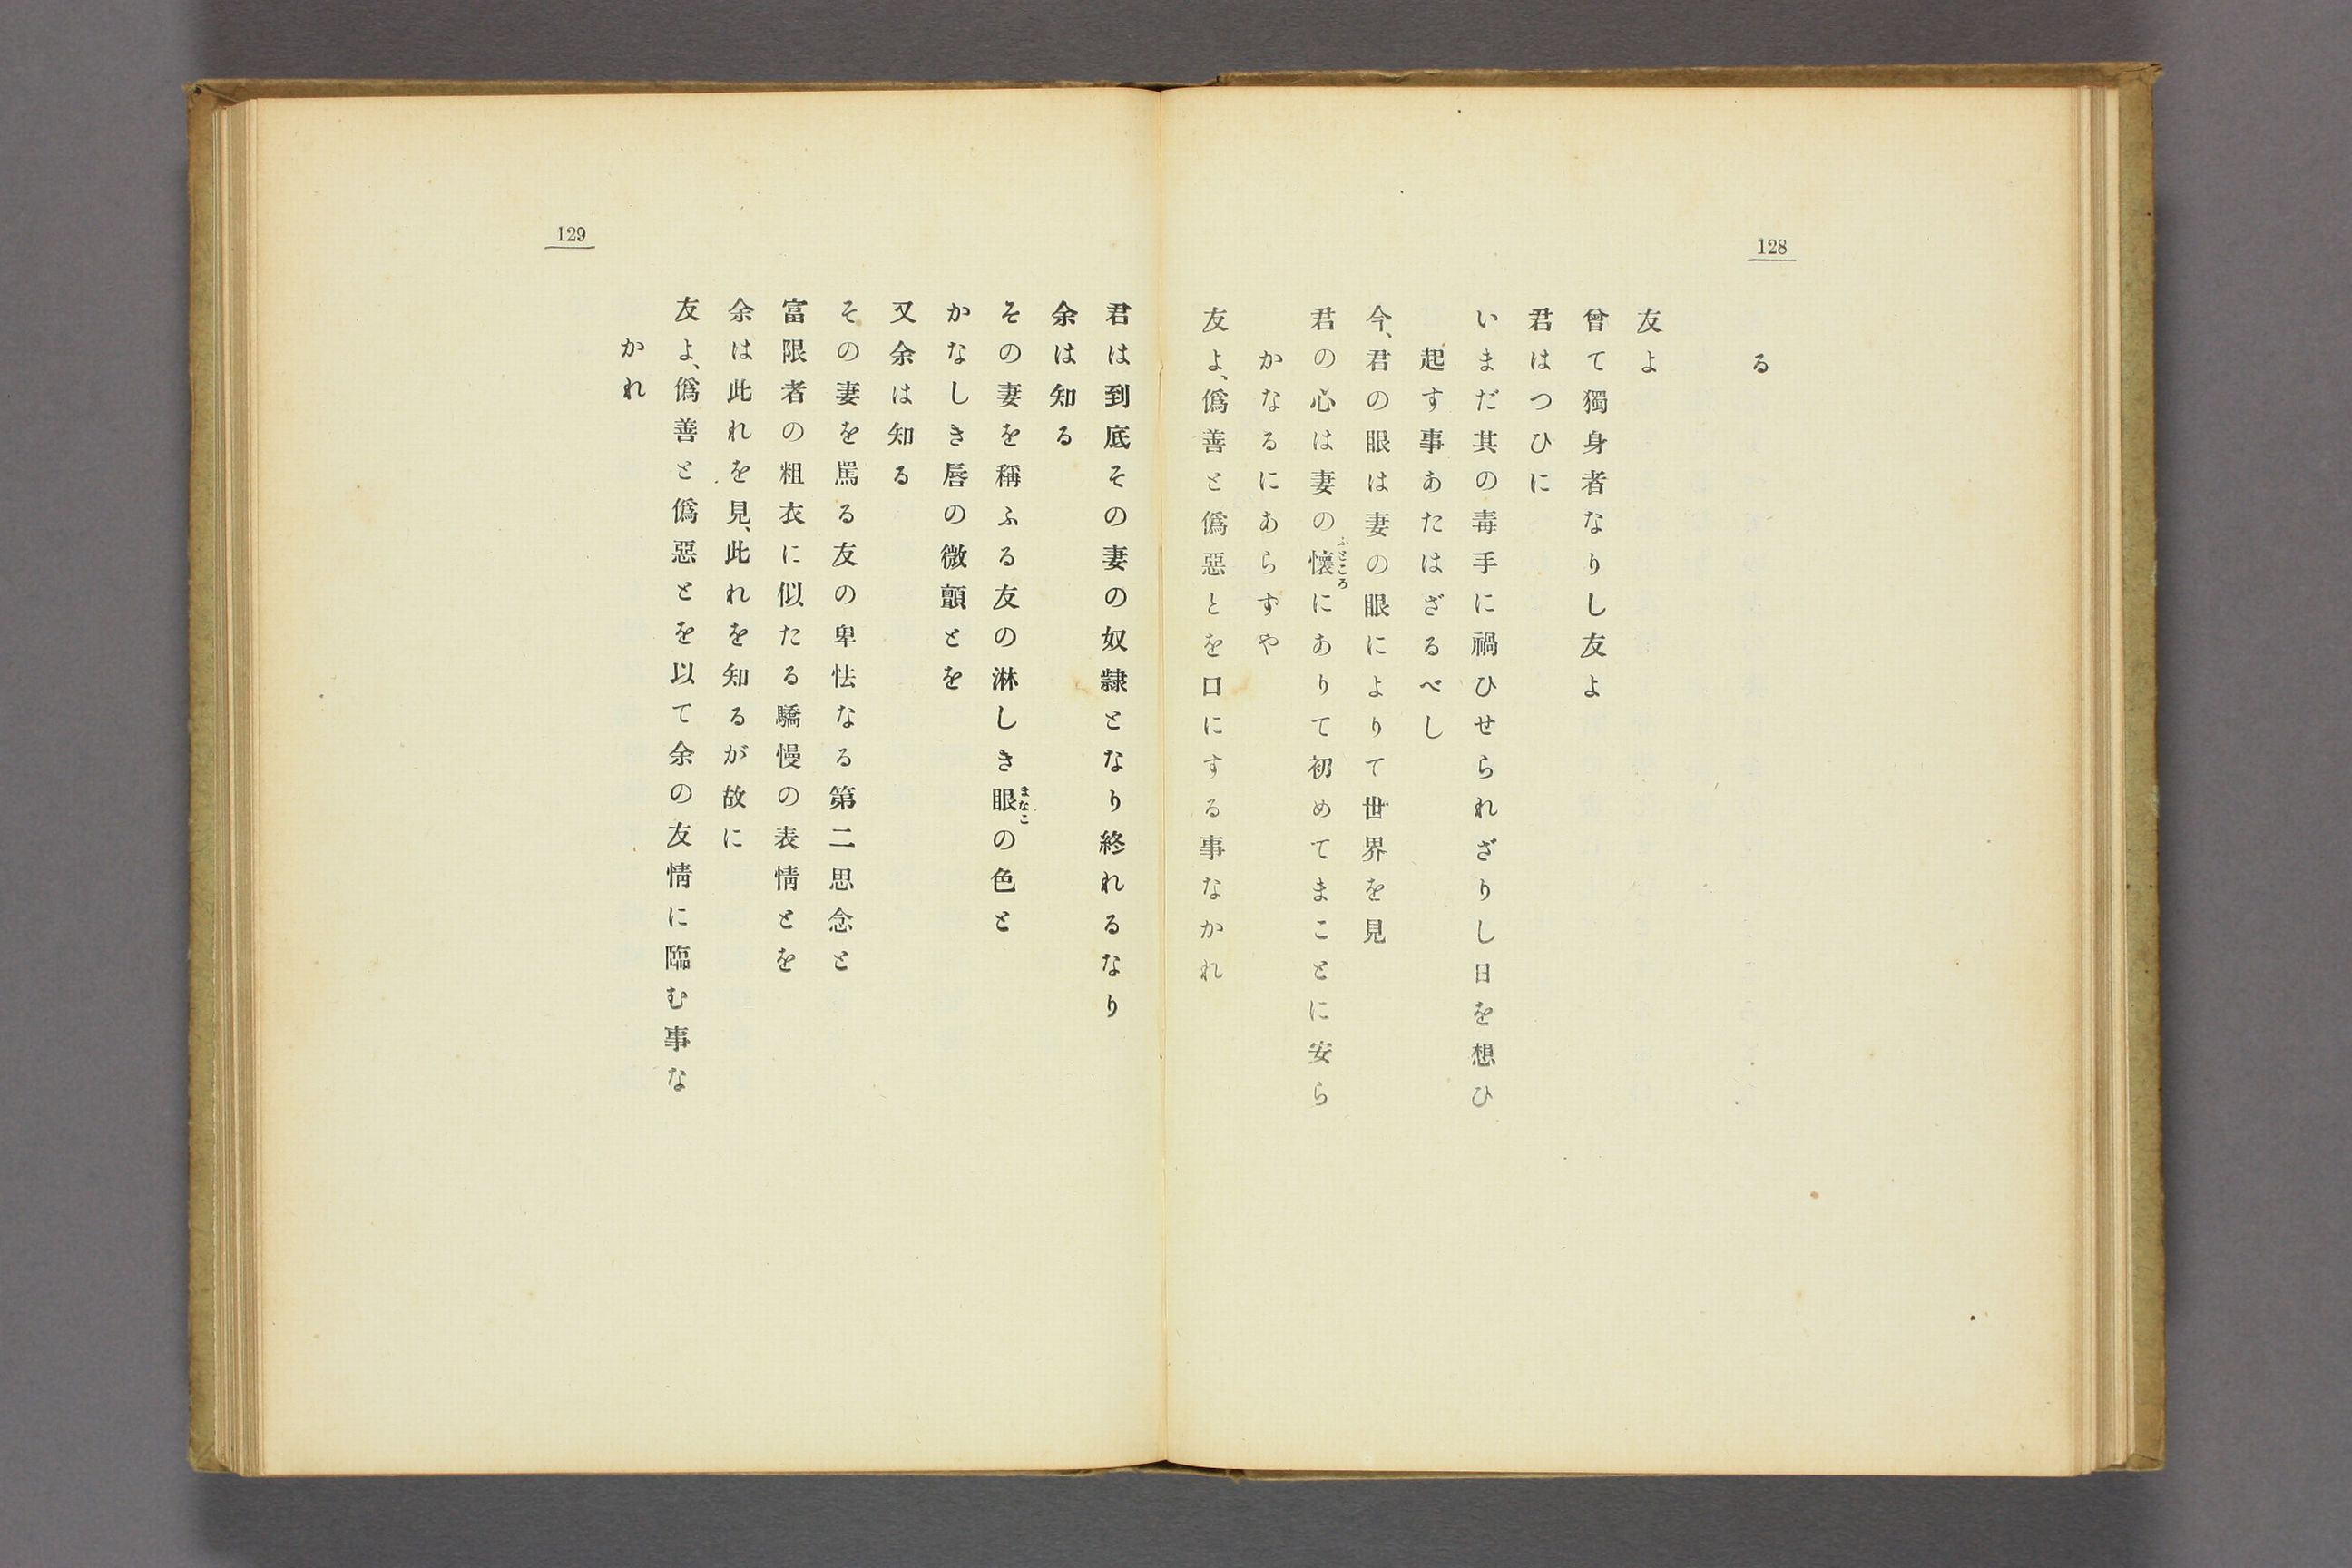 128
る
友よ
曾て獨身者なりし友よ
君はつひに
いまだ其の毒手に禍ひせられざりし日を想ひ
起す事あたはざるべし
今、君の眼は妻の眼によりて世界を見
君の心は妻の懷にありて初めてまことに安ら
ふところ
かなるにあらずや
友よ、僞善と僞惡とを口にする事なかれ
129
君は到底その妻の奴隷となり終れるなり
余は知る
その妻を稱ふる友の淋しき眼の色と
まなこ
かなしき唇の微顫とを
又余は知る
その妻を罵る友の卑怯なる第二思念と
富限者の粗衣に似たる驕慢の表情とを
余は此れを見、此れを知るが故に
友よ、僞善と僞惡とを以て余の友情に臨む事な
かれ